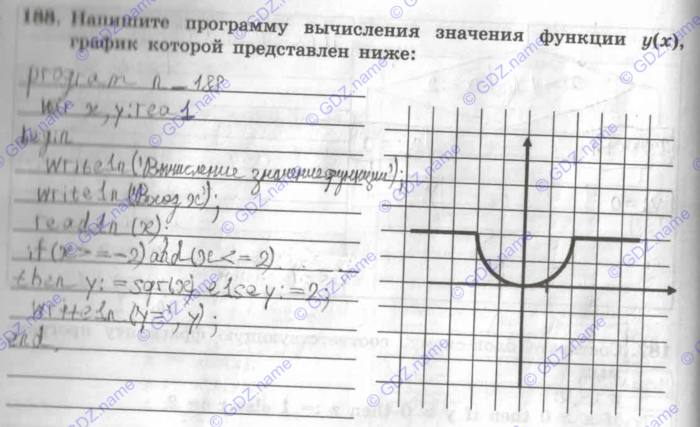 188. Напишите программу вычисления значения функции y(x),
график которой представлен ниже:
program n_188
var x, y: real
begin
writeln('Вычисление значение функции');
writeln('Вход x');
readln (x);
if (x>=-2) and (x<=2)
then y:=sqr(x) else y:=2;
writeln('y=', y);
end.
соответствующую
0 then if y > 0 then z := 1 else z := 2
© GDZ.name